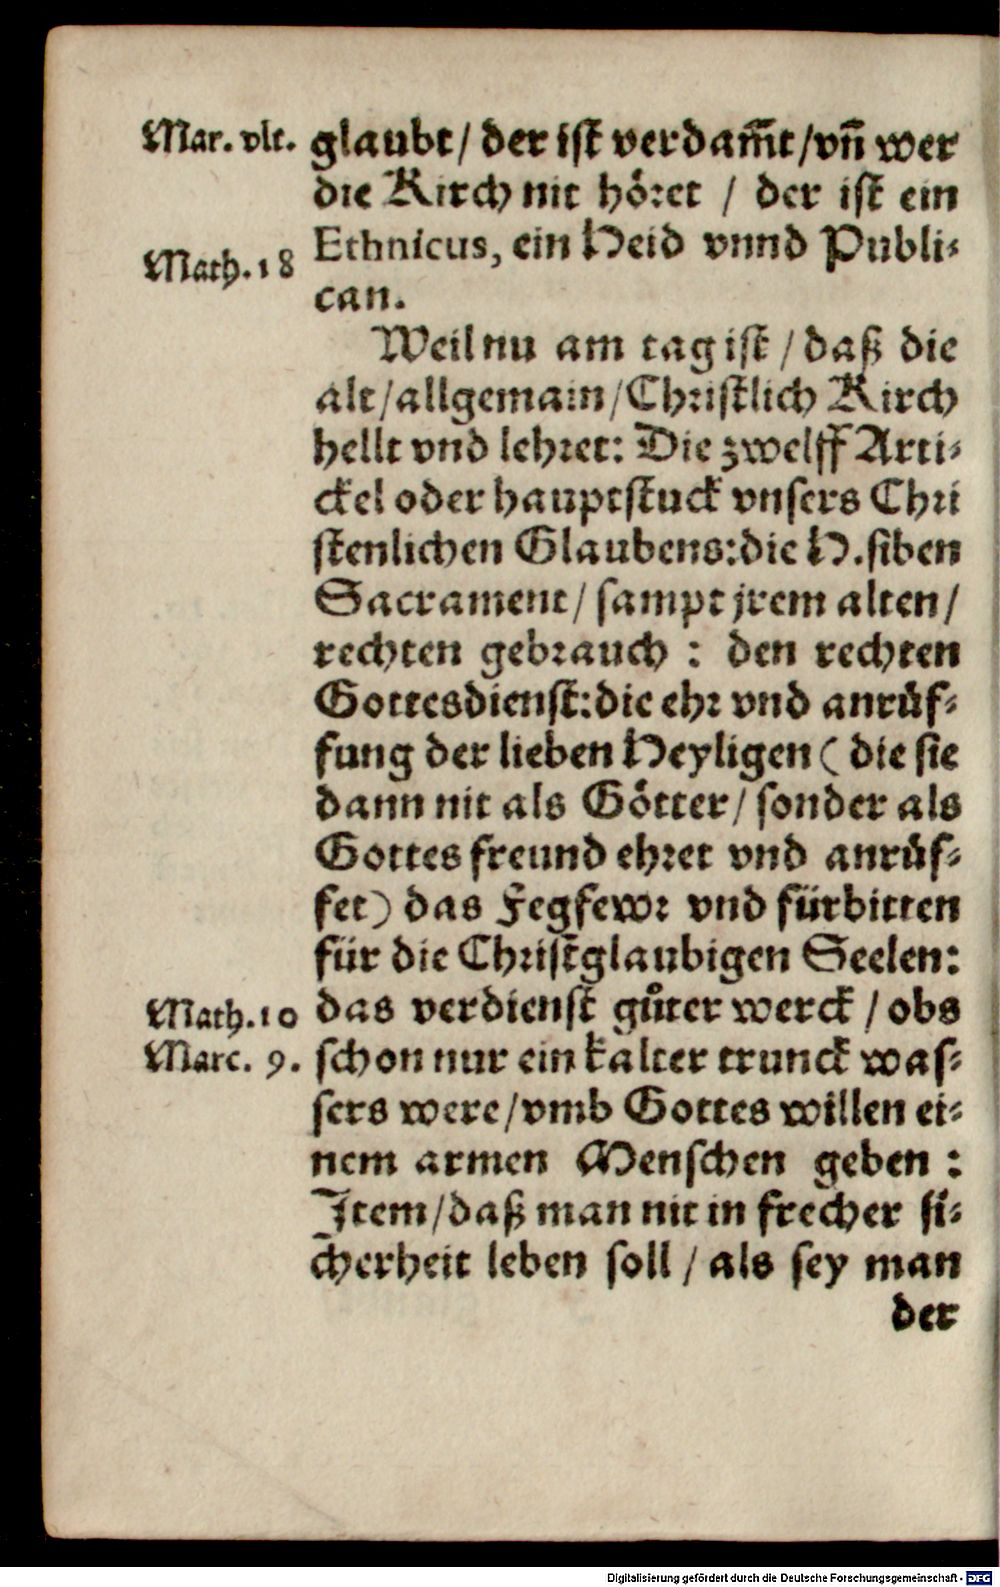 Mar. vlt. glaubt / der ist verdam̃t / vñ wer
die Kirch nit höret / der ist ein
Math. 18 Ethnicus, ein Heid vnnd Publi-
can.
Weil nu am tag ist / daß die
alt / allgemain / Christlich Kirch
hellt vnd lehret: Die zwelff Arti-
ckel oder hauptstuck vnsers Chri
stenlichen Glaubens: die H. siben
Sacrament / sampt jrem alten /
rechten gebrauch : den rechten
Gottesdienst: die ehr vnd anrůf-
fung der lieben Heyligen ( die sie
dann nit als Götter / sonder als
Gottes freund ehret vnd anrůf-
fet ) das Fegfewr vnd fürbitten
für die Christglaubigen Seelen:
Math. 10 das verdienst gůter werck / obs
Marc. 9. schon nur ein kalter trunck was-
sers were / vmb Gottes willen ei-
nem armen Menschen geben :
Item / daß man nit in frecher si-
cherheit leben soll / als sey man
der
Digitalisierung gefördert durch die Deutsche Forschungsgemeinschaft - DFG